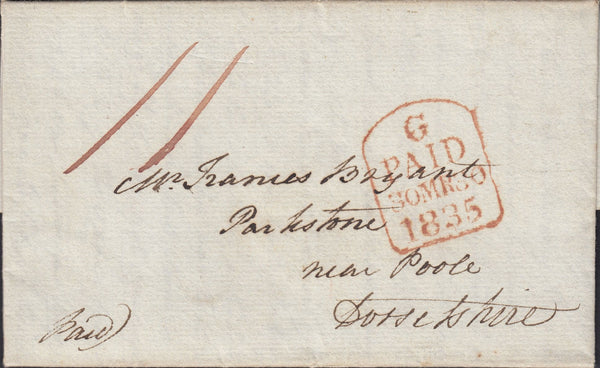 11
G
PAID
1835
Mr. Frances Bryant
Parkstone
near Poole
Dorsetshire
Paid